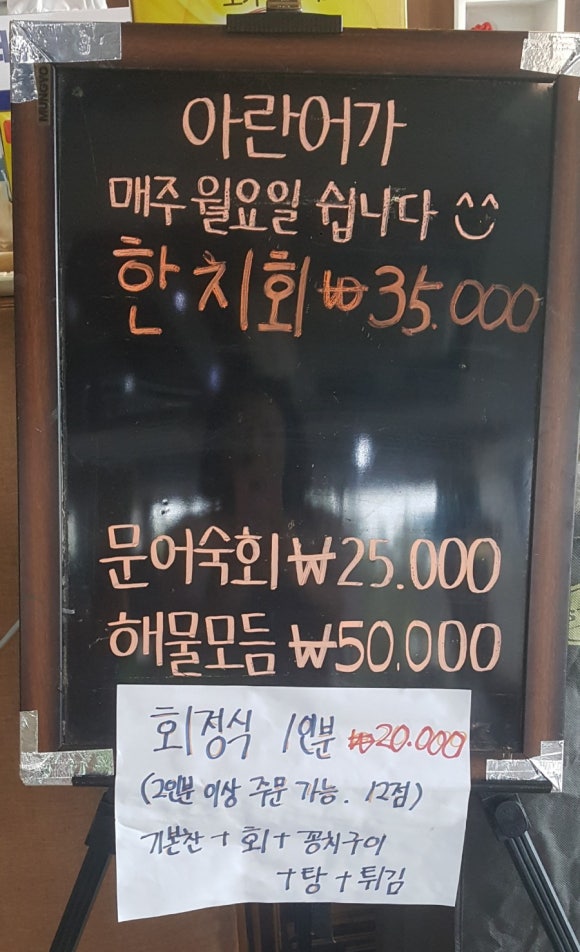 MUNGYO
아란어가
매주 월요일 쉽니다 ^^
한치회 ₩35.000
문어숙회 ₩25.000
해물모듬 ₩50.000
회정식 1인분 ₩20.000
(2인분 이상 주문 가능. 12점)
기본찬 + 회 + 꽁치구이
+ 탕 + 튀김